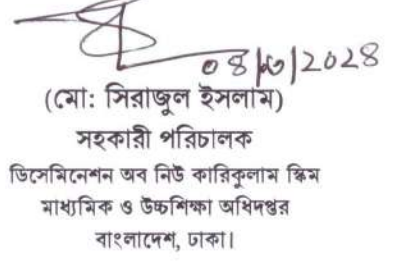 ০৪/৩/২০২৪
(মো: সিরাজুল ইসলাম)
সহকারী পরিচালক
ডিসেমিনেশন অব নিউ কারিকুলাম স্কিম
মাধ্যমিক ও উচ্চশিক্ষা অধিদপ্তর
বাংলাদেশ, ঢাকা।